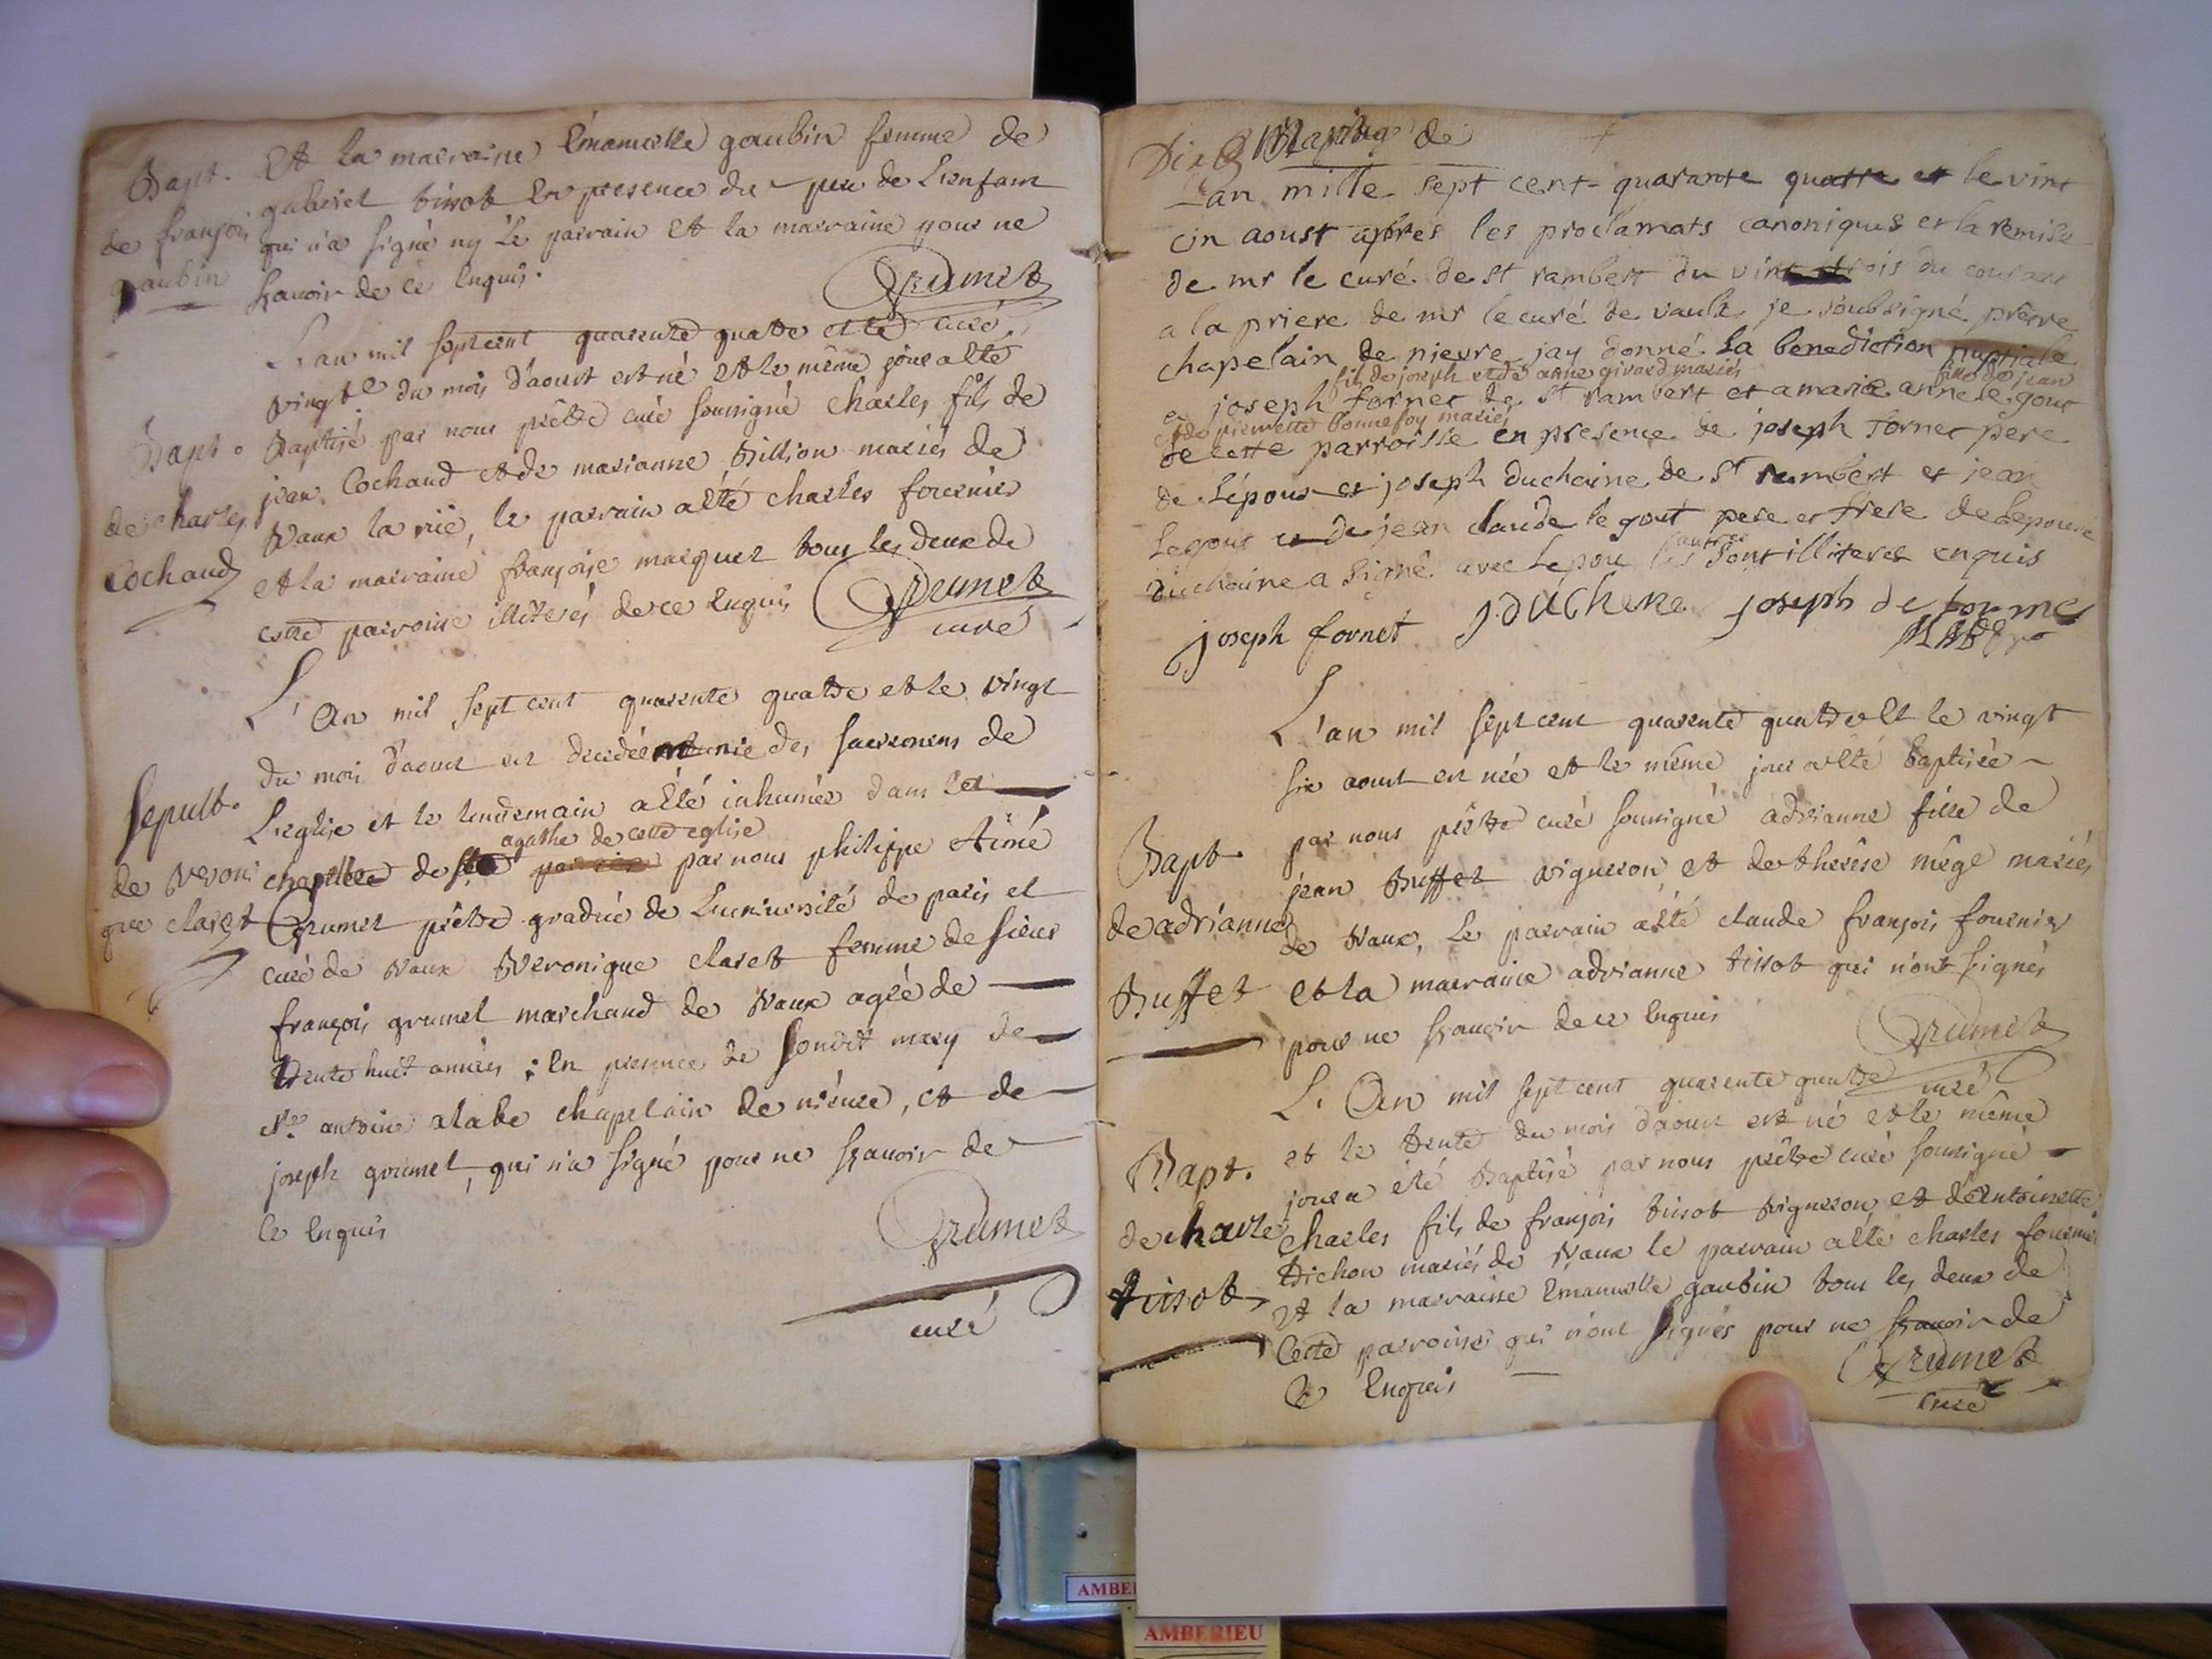 Bapt.
de françois
gaubin
Et la marraine Emanuelle gaubin femme de
gabriel tissot en presence du pere de L'enfant
qui n'a signé ny le parrain et la marraine pour ne
sçavoir de ce Enquis.
Grumet
curé
Bapt.
de charles
Cochand
L'an mil sept cent quarente quatre et le
vingt du mois d'aoust est né et le même jour a été
Baptisé par nous prêtre curé soussigné charles fils de
jean Cochand et de marianne billion mariés de
Vaux la rie, le parrain a été charles fournier
et la marraine françoise marquet tous les deux de
cette parroisse illiterés de ce Enquis
Grumet
curé
Sepult.
de veroni
que claret
L'an mil sept cent quarente quatre et le vingt
du mois d'aoust est decedée munie des sacremens de
L'eglise et le lendemain a été inhumée dans la
chapelle de ste agathe de cette eglise par nous philippe Aimé
Grumet prêtre gradué de L'université de paris et
curé de Vaux Veronique claret femme de sieur
françois grumet marchand de Vaux agée de
trente huit années ; En presence de sondit mary de
Mre antoine alabe chapelain de niévre, et de
joseph grumet, qui n'a signé pour ne sçavoir de
ce Enquis
Grumet
curé
Mariage de
L'an mille sept cent quarante quatre et le vint
cin aoust apres les proclamats canoniques et la remise
de mr le curé de st rambert du vint trois du courant
a la priere de mr le curé de vaulx je soubsigné prêtre
chapelain de nievre jay donné la benediction nuptiale
fils de joseph et de anne girard mariés
fille de jean
a joseph fornet de st rambert et a marie anne le gout
et de pierrette bonnefoy mariés
de cette parroisse en presence de joseph fornet pere
de lépoux et joseph duchaine de st rambert et jean
Legout et de jean claude le gout pere et frere de lepouse
duchaine a signé avec lepou les autres sont illiteres enquis
joseph fornet J. duchene joseph de forne
Bapt.
de adrianne
Buffet
L'an mil sept cent quarente quatre et le vingt
six aoust est née et le même jour a été baptisée
par nous prêtre curé soussigné adrianne fille de
jean Buffet vigneron et de therèse mêge mariés
de Vaux, Le parrain a été claude françois fournier
et la marraine adrianne tissot qui n'ont signés
pour ne sçavoir de ce Enquis
Grumet
curé
Bapt.
de charle
tissot
L'An mil sept cent quarente quatre
et le trente du mois d'aoust est né et le même
jour a été Baptisé par nous prêtre curé soussigné
Charles fils de françois tissot vigneron et d'Antoinette
Dichon mariés de Vaux le parrain a été charles fournier
et la marraine Emanuelle gaubin tous les deux de
Cette parroisse qui n'ont signés pour ne sçavoir de
ce Enquis
Grumet
Curé
AMBE
AMBERIEU